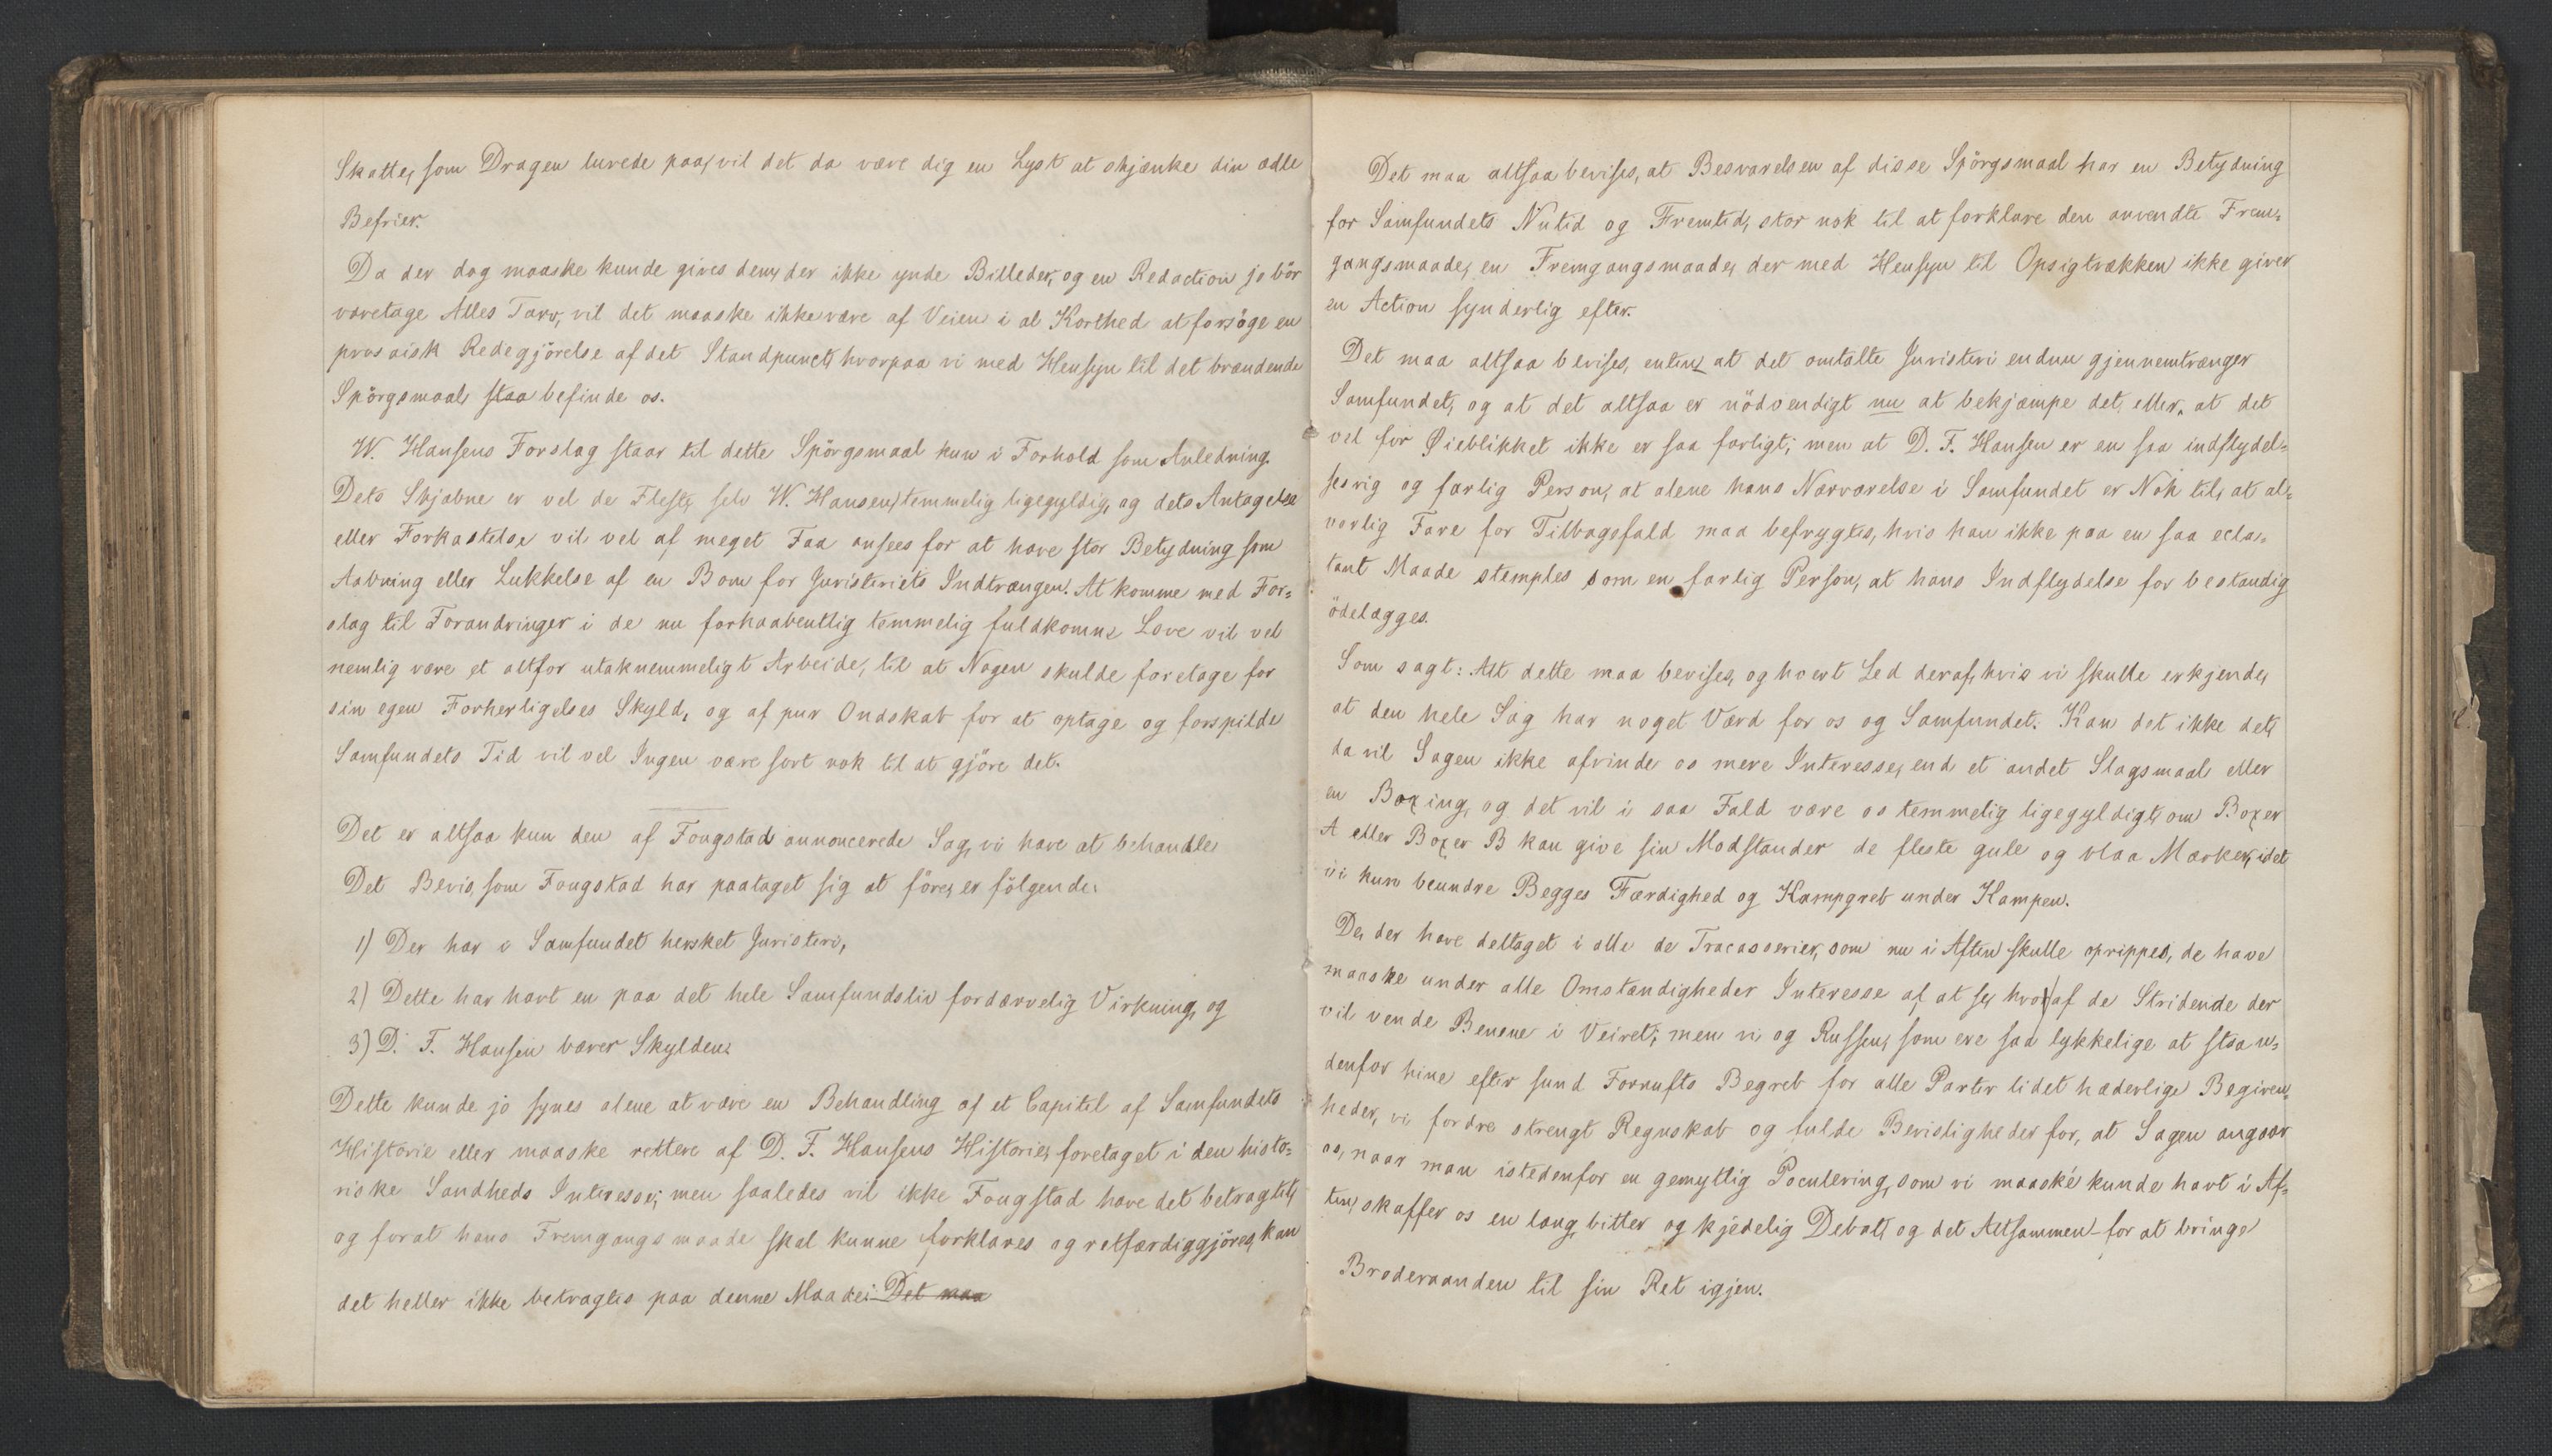 Skatte, som Dragen lurede paa, vil det da være dig en Lyst at skjænke din ædle
Befrier.
Da der dog maaske kunde gives dem, der ikke ynde Billeder, og en Redaction jo bör
varetage Alles Tarv, vil det maaske ikke være af Veien i al Korthed at forsöge en
prosaisk Redegjörelse af det Standpunct, hvorpaa vi med Hensyn til det brændende
Spörgsmaal staa befinde os.
W. Hansens Forslag staar til dette Spörgsmaal kun i Forhold som Anledning.
Dets Skjæbne er vel de Fleste, selv W. Hansen, temmelig ligegyldig, og dets Antagelse
eller Forkastelse vil vel af meget Faa ansees for at have stor Betydning som
Aabning eller Lukkelse af en Bom for Juristeriets Indtrængen. At komme med For-
slag til Forandringer i de nu forhaabentlig temmelig fuldkomne Love vil vel
nemlig være et altfor utaknemmeligt Arbeide, til at Nogen skulde foretage for
sin egen Forherligelses Skyld, og af pur Ondskab for at optage og forspilde
Samfundets Tid vil vel Ingen være sort nok til at gjöre det.
Det er altsaa kun den af Fougstad annoncerede Sag, vi have at behandle.
Det Bevis, som Fougstad har paataget sig at före, er fölgende:
1) Der har i Samfundet hersket Juristeri,
2) Dette har havt en paa det hele Samfundsliv fordærvelig Virkning, og
3) D. F. Hansen bærer Skylden.
Dette kunde jo synes alene at være en Behandling af et Capitel af Samfundets
Historie eller maaske rettere af D. F. Hansens Historie, foretaget i den histo-
riske Sandheds Interesse; men saaledes vil ikke Fougstad have det betragtet,
og forat hans Fremgangsmaade skal kunne forklares og retfærdiggjöres, kan
det heller ikke betragtes paa denne Maade: Det maa
Det maa altsaa bevises, at Besvarelsen af disse Spörgsmaal har en Betydning
for Samfundets Nutid og Fremtid, stor nok til at forklare den anvendte Frem-
gangsmaade, en Fremgangsmaade, der med Hensyn til Opsigtvækken ikke giver
en Action synderlig efter.
Det maa altsaa bevises, enten, at det omtalte Juristeri endnu gjennemtrænger
Samfundet, og at det altsaa er nödvendigt nu at bekjæmpe det, eller, at det
vel for Øieblikket ikke er saa farligt; men at D. F. Hansen er en saa indflydel-
sesrig og farlig Person, at alene hans Nærværelse i Samfundet er Nok til, at al-
vorlig Fare for Tilbagefald maa befrygtes, hvis han ikke paa en saa ecla-
tant Maade stemples som en farlig Person, at hans Indflydelse for bestandig
ödelægges.
Som sagt: Alt dette maa bevises, og hvert Led deraf, hvis vi skulle erkjende,
at den hele Sag har noget Værd for os og Samfundet. Kan det ikke det,
da vil Sagen ikke afvinde os mere Interesse, end et andet Slagsmaal eller
en Boxing, og det vil i saa Fald være os temmelig ligegyldigt, om Boxer
A eller Boxer B kan give sin Modstander de fleste gule og blaa Mærker, idet
vi kun beundre Begges Færdighed og Kampgreb under Kampen.
De, der have deltaget i alle de Tracasserier, som nu i Aften skulle oprippes, de have
maaske under alle Omstændigheder Interesse af at se, hvo af de Stridende der
vil vende Benene i Veiret; men vi og Russen, som ere saa lykkelige at staa u-
denfor hine efter sund Fornufts Begreb for alle Parter lidet hæderlige Begiven-
heder, vi fordre strengt Regnskab og fulde Bevisligheder for, at Sagen angaar
os, naar man istedenfor en gemytlig Poculering, som vi maaske kunde havt i Af-
ten, skaffer os en lang, bitter og kjedelig Debat, og det Altsammen - for at bringe
Broderaanden til sin Ret igjen.